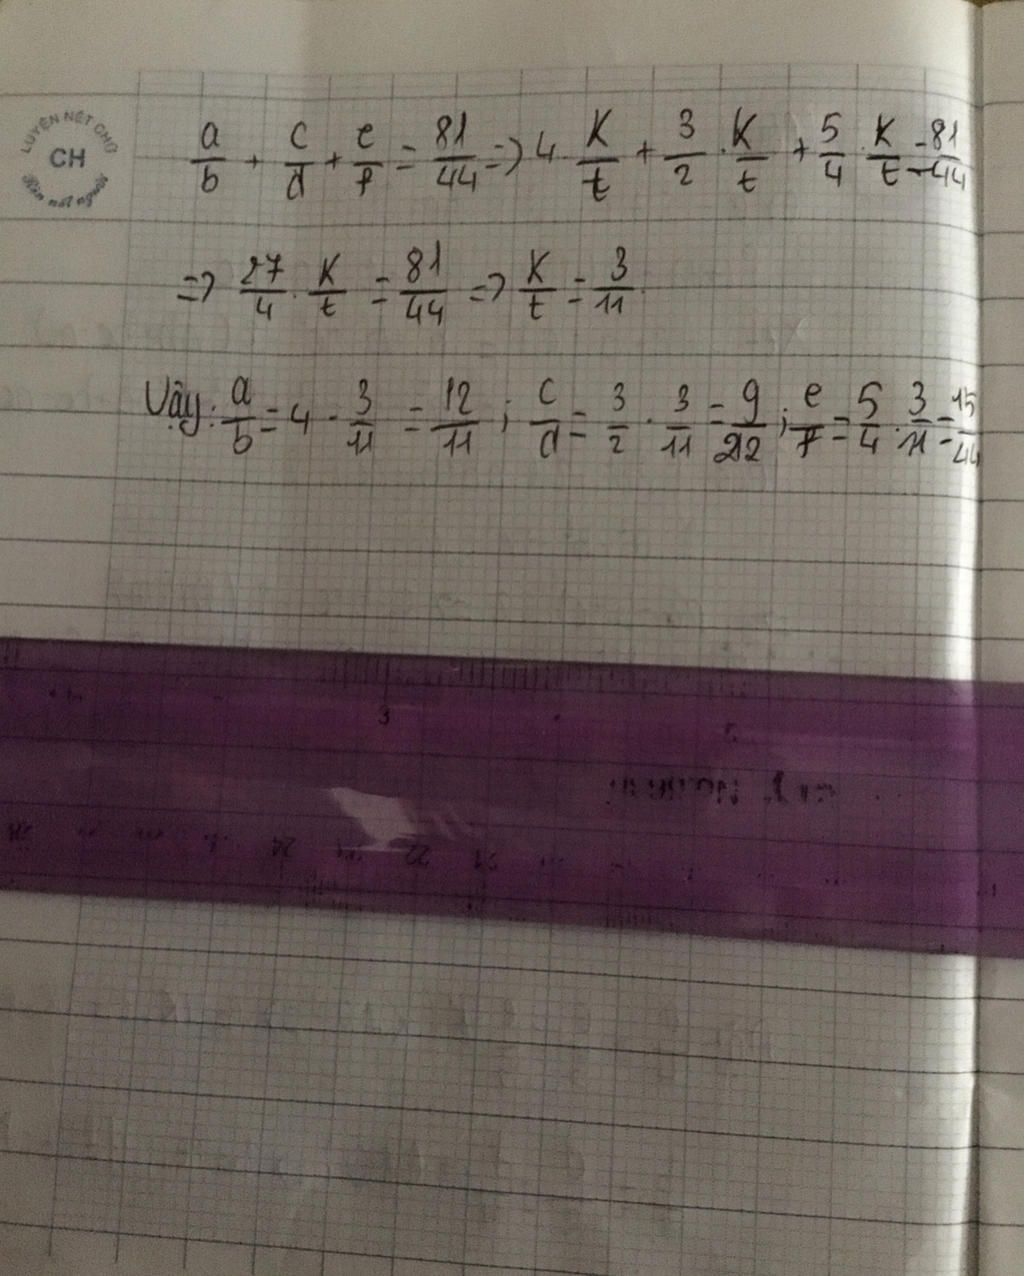 LUYỆN NÉT CHỮ
CH
a/b + c/d + e/f = 81/44 => 4 · K/t + 3/2 · K/t + 5/4 · K/t = 81/44
=> 27/4 · K/t = 81/44 => K/t = 3/11
Vậy: a/b = 4 · 3/11 = 12/11 ; c/d = 3/2 · 3/11 = 9/22 ; e/f = 5/4 · 3/11 = 15/44
3
5
24 22 21